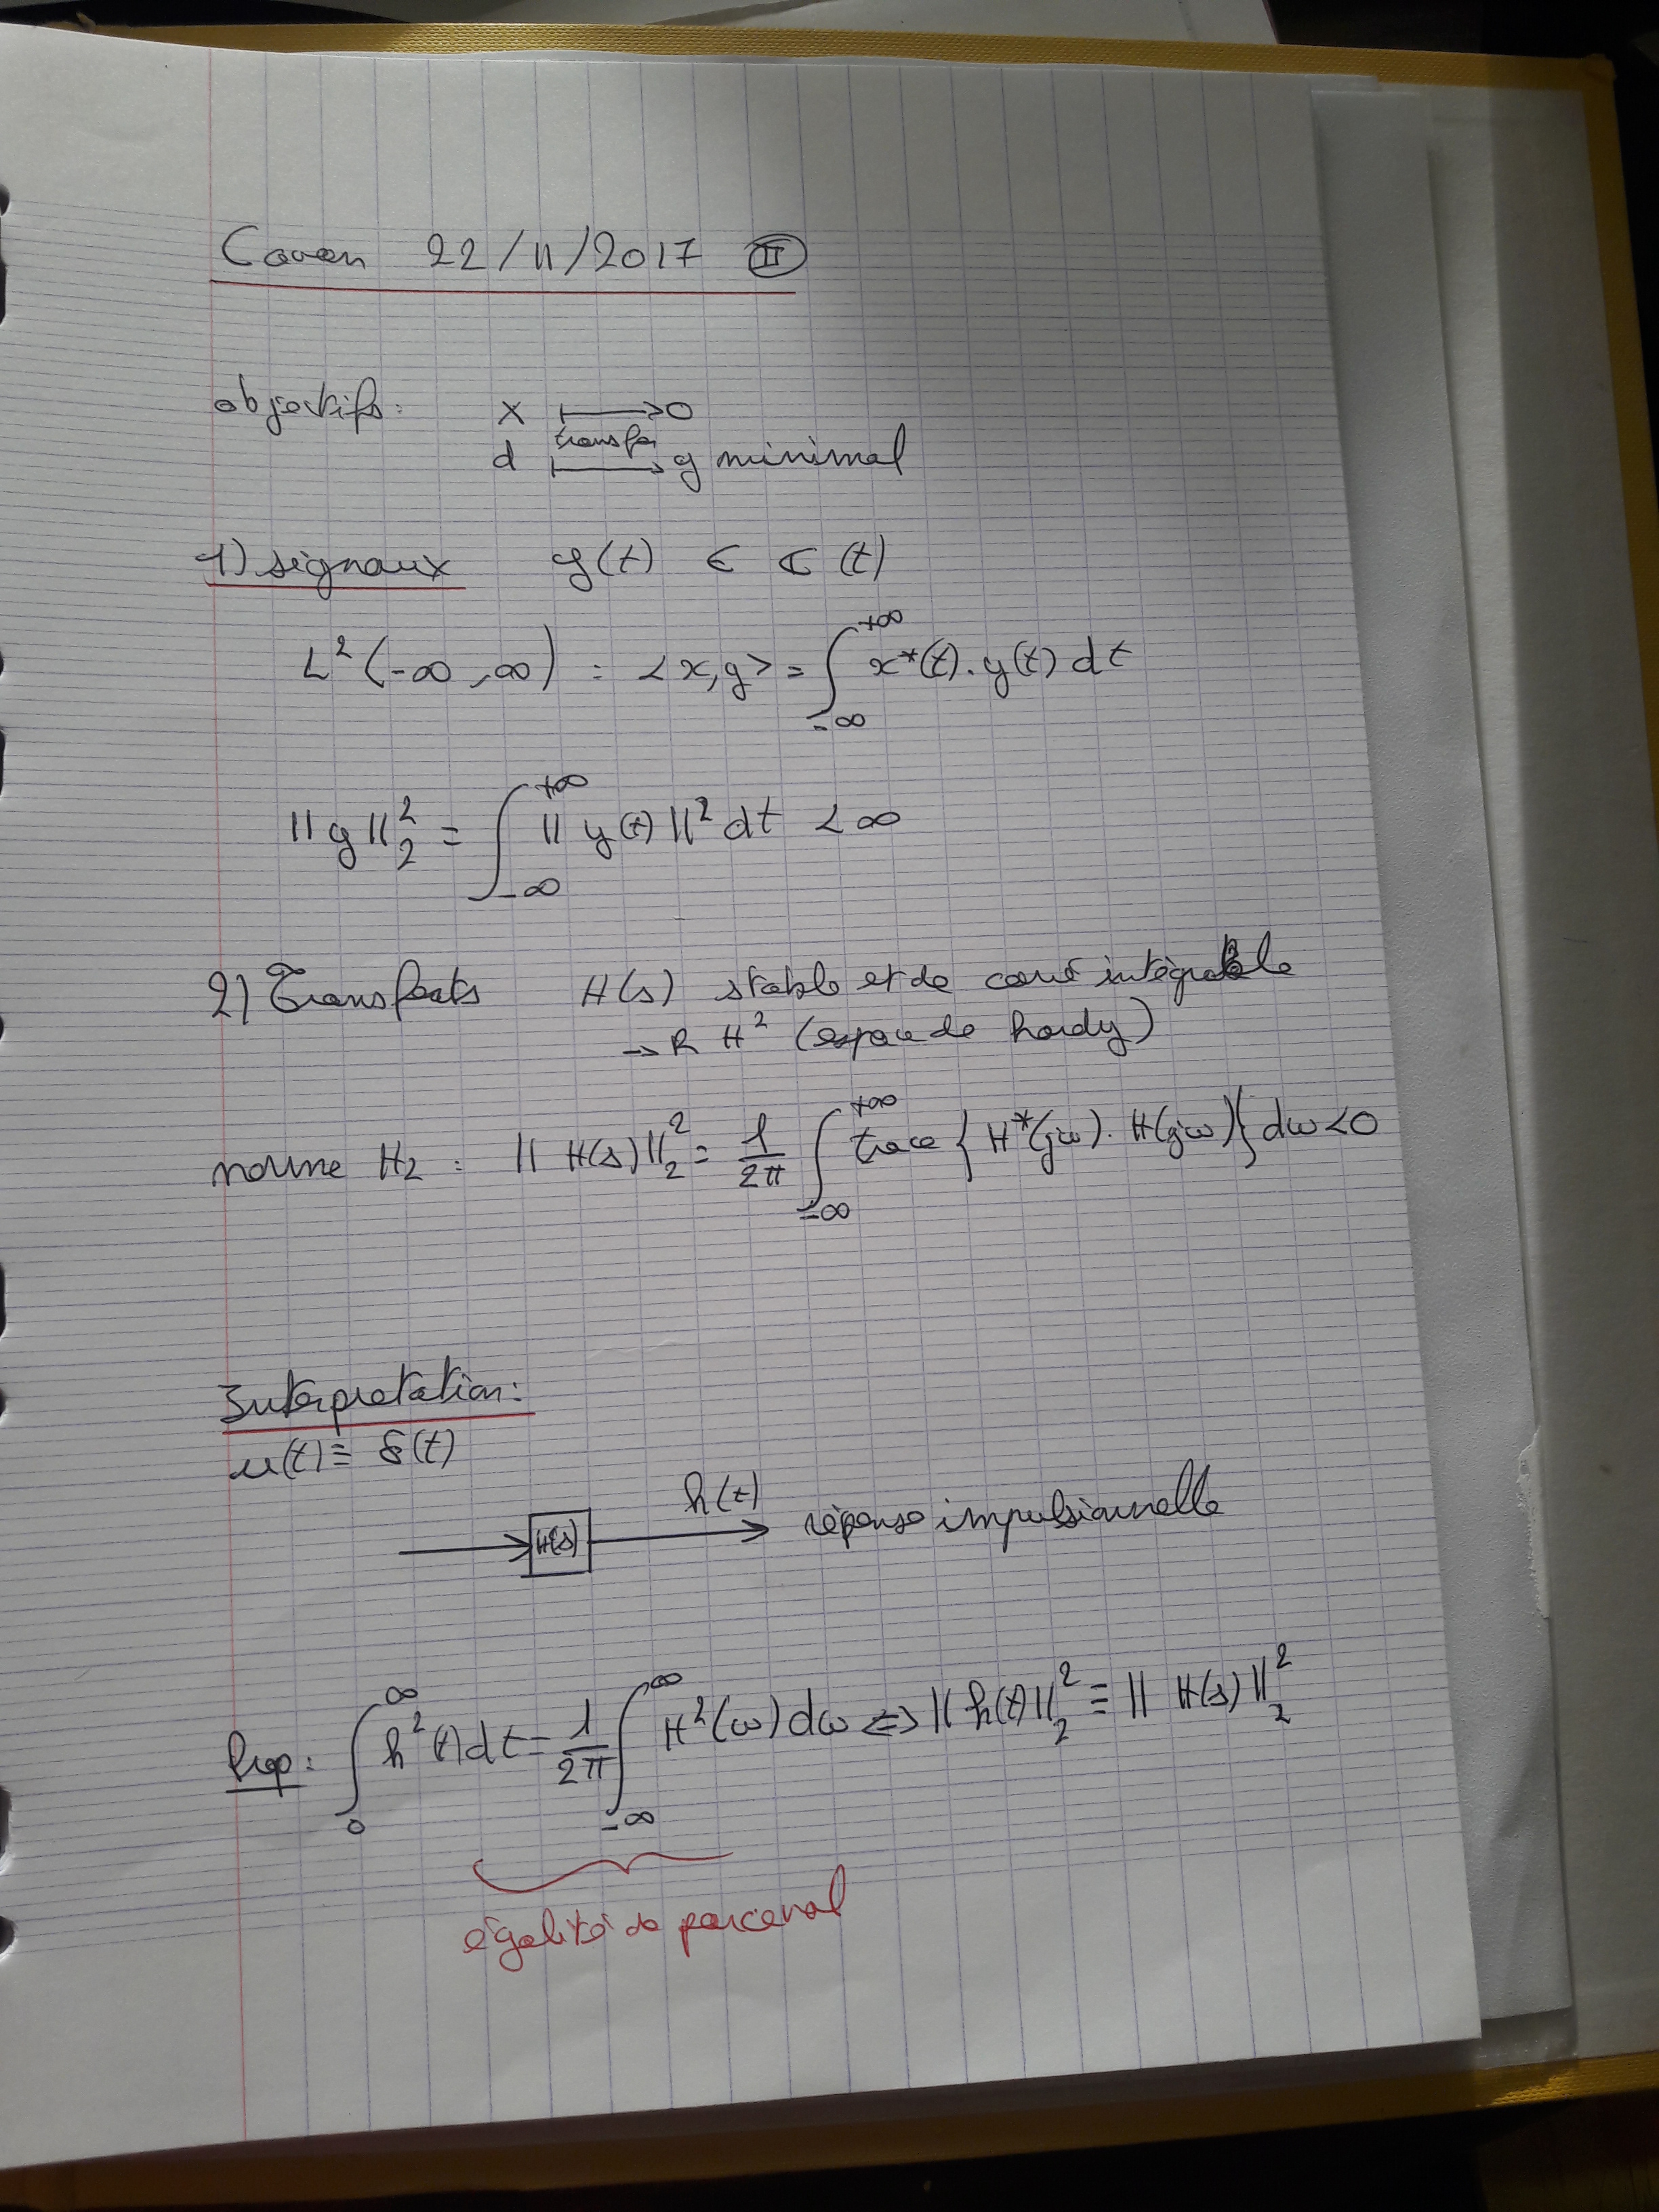 Coven 22/11/2017 II
objectifs: x ⟼ 0
d ⟼ transfer y minimal
1) signaux y(t) ∈ ℂ(t)
L²(-∞,∞) : <x,y> = ∫_{-∞}^{+∞} x*(t).y(t) dt
||y||₂² = ∫_{-∞}^{+∞} ||y(t)||² dt < ∞
2) Transferts H(s) stable et de carré intégrable
→ R H² (espace de hardy)
norme H₂ : ||H(s)||₂² = 1/2π ∫_{-∞}^{+∞} trace {H*(jω).H(jω)} dω < 0
Interpretation:
u(t) ≡ δ(t)
H(s) h(t) réponse impulsionnelle
Prop: ∫_{0}^{∞} h²(t)dt = 1/2π ∫_{-∞}^{∞} H²(ω)dω ⇔ ||h(t)||₂² ≡ ||H(s)||₂²
égalité de parceval